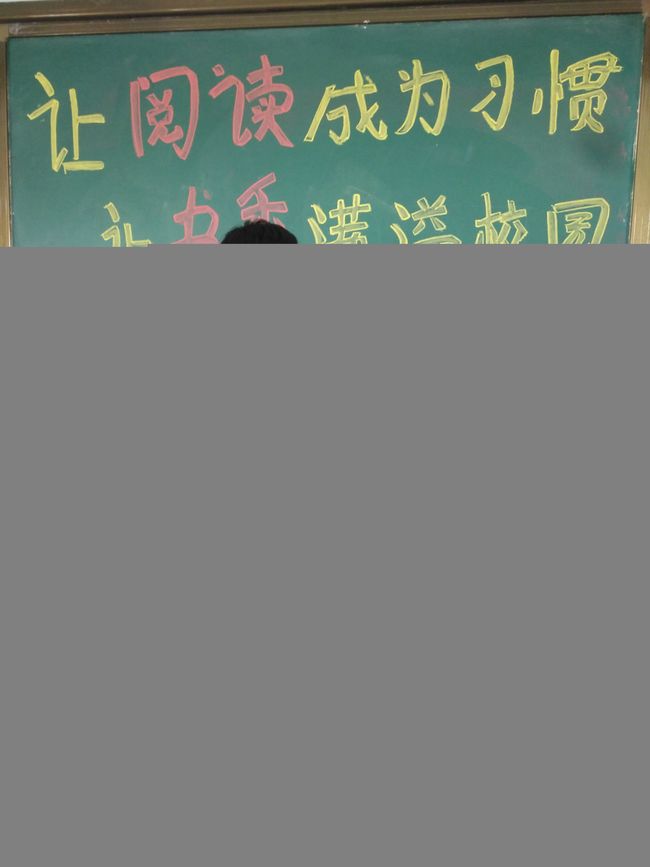 让阅读成为习惯
让书香满溢校园